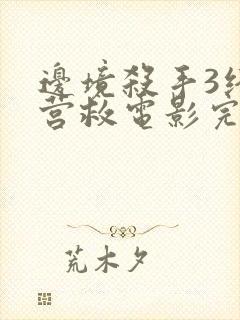 邊境殺手3终
营救电影完
荒木夕